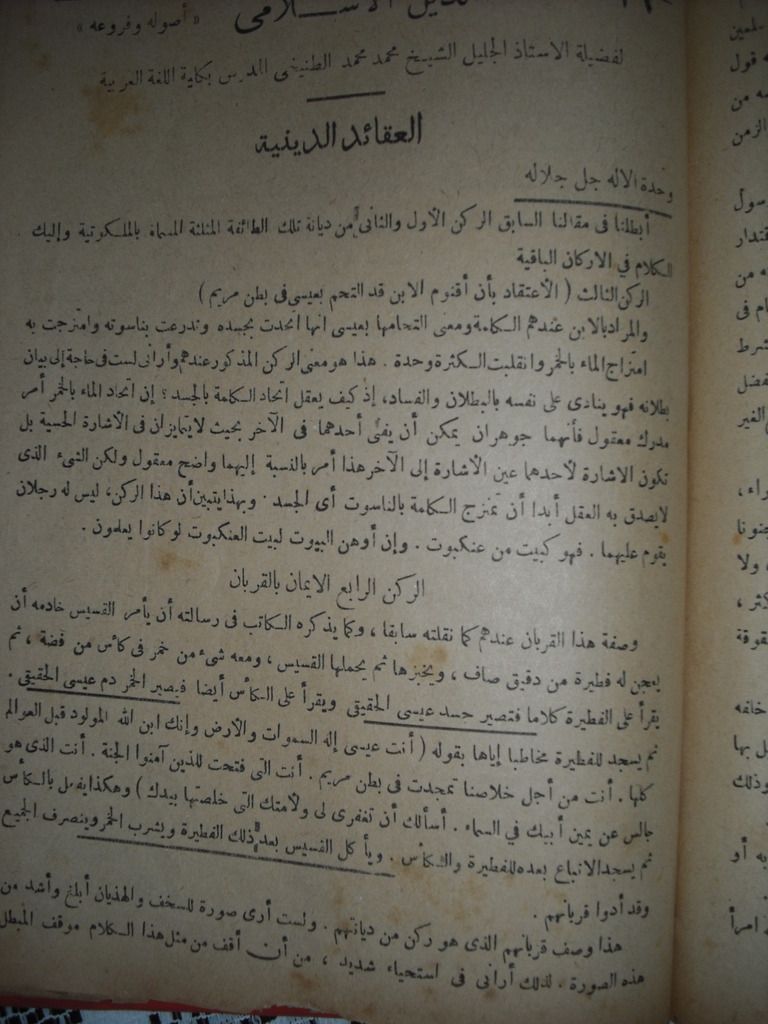 الاسلامى
« أصوله وفروعه »
لفضيلة الاستاذ الجليل الشيخ محمد محمد الطنيخى المدرس بكلية اللغة العربية
العقائد الدينية
وحدة الاله جل جلاله
أبطلنا فى مقالنا السابق الركن الأول والثانى من ديانة تلك الطائفة المثلثة المسماة بالملكوتية وإليك
الكلام في الاركان الباقية
الركن الثالث ( الأعتقاد بأن أقنوم الابن قد التحم بعيسى فى بطن مريم )
والمراد بالابن عندهم الكلمة ومعنى التحامها بعيسى انها اتحدت بجسده وتدرعت بناسوته وامتزجت به
امتزاج الماء بالخمر وانقلبت الكثرة وحدة . هذا هو معنى الركن المذكور عندهم وأرانى لست فى حاجة إلى بيان
بطلانه فهو ينادى على نفسه بالبطلان والفساد، إذ كيف يعقل اتحاد الكلمة بالجسد ؟ إن اتحاد الماء بالخمر أمر
مدرك معقول فأنهما جوهران يمكن أن يفنى أحدهما فى الآخر بحيث لا يتمايزان فى الأشارة الحسية بل
تكون الاشارة لأحدهما عين الأشارة إلى الآخر هذا أمر بالنسبة إليهما واضح معقول ولكن الشىء الذى
لا يصدق به العقل أبدا أن تمتزج الكلمة بالناسوت أى الجسد . وبهذا يتبين أن هذا الركن، ليس له رجلان
يقوم عليهما . فهو كبيت من عنكبوت . وإن أوهن البيوت لبيت العنكبوت لو كانوا يعلمون .
الركن الرابع الايمان بالقربان
وصفة هذا القربان عندهم كما نقلته سابقا ، وكما يذكره الكاتب فى رسالته أن يأمر القسيس خادمه أن
يعجن له فطيرة من دقيق صاف ، ويخبزها ثم يحملها القسيس ، ومعه شىء من خمر فى كأس من فضة ، ثم
يقرأ على الفطيرة كلاما فتصير جسد عيسى الحقيقى ويقرأ على الكأس أيضا فيصير الخمر دم عيسى الحقيقى .
ثم يسجد للفطيرة مخاطبا إياها بقوله ( أنت عيسى إله السموات والأرض وإنك ابن الله المولود قبل العوالم
كلها . أنت من أجل خلاصنا تمجدت فى بطن مريم . أنت التى فتحت للذين آمنوا الجنة . أنت الذى هو
جالس عن يمين أبيك في السماء . أسألك أن تغفرى لى ولأمتك التى خلصتها بيدك ) وهكذا يفعل بالكأس
ثم يسجد الاتباع بعده للفطيرة والكأس . ويأكل القسيس بعد ذلك الفطيرة ويشرب الخمر وينصرف الجميع
وقد أدوا قربانهم .
هذا وصف قربانهم الذى هو ركن من ديانتهم . ولست أرى صورة للسخف والهذيان أبلغ وأشد من
هذه الصورة . لذلك أرانى فى استحياء شديد ، من أن أقف من مثل هذا الكلام موقف المبطل